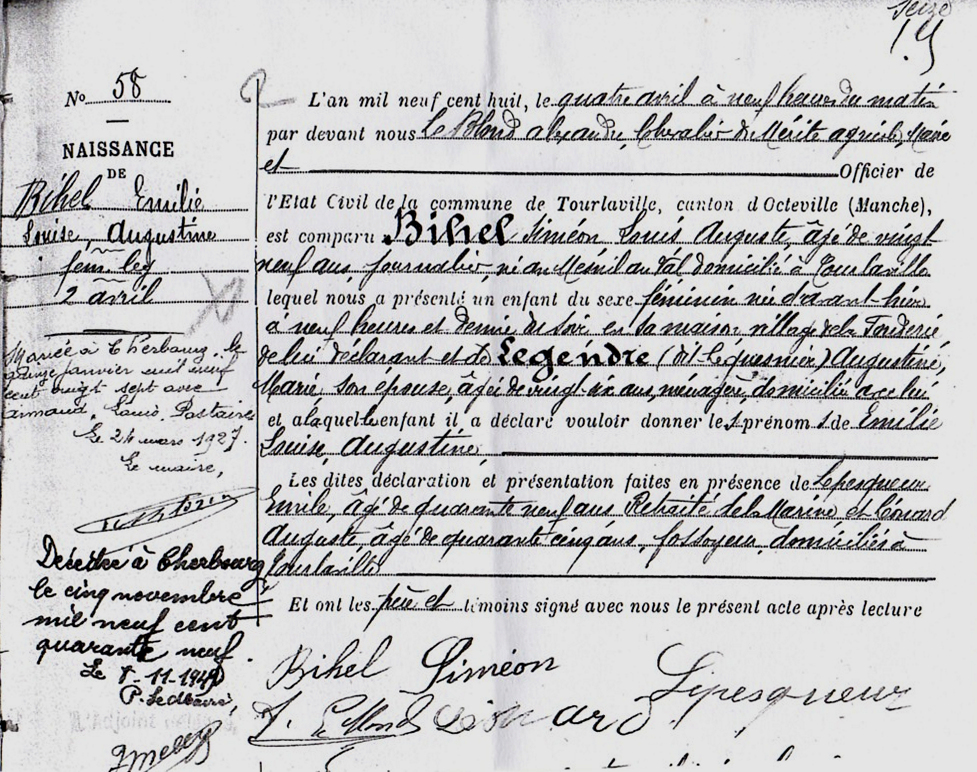 Seize
15
N° 58
NAISSANCE
DE
Bihel Emilie
Louise, Augustine
fém. leg
2 avril
Mariée à Cherbourg, le
janvier mil neuf
cent vingt sept avec
Armand, Louis, Postaire
Le 24 mars 1927.
Le maire,
Décédée à Cherbourg
le cinq novembre
mil neuf cent
quarante neuf.
Le 8-11-1949
L'an mil neuf cent huit, le quatre avril à neuf heures du matin
par devant nous Le Blond Alexandre, Chevalier du Mérite agricole, Maire
et Officier de
l'Etat Civil de la commune de Tourlaville, canton d'Octeville (Manche),
est comparu Bihel Siméon Louis Auguste, âgé de vingt
neuf ans, journalier, né au Mesnil au Val domicilié à Tourlaville
lequel nous a présenté un enfant du sexe féminin née d'avant-hier
à neuf heures et demie du soir en sa maison village de la
de lui déclarant et de Legendre (dit Lequesnier) Augustine,
Marie, son épouse, âgée de vingt-six ans, ménagère, domiciliée avec lui
et a laquelle enfant il a déclaré vouloir donner les prénoms de Emilie
Louise, Augustine,
Les dites déclaration et présentation faites en présence de Lepesqueur
Emile, âgé de quarante neuf ans Retraité de la Marine et Léonard
Auguste âgé de quarante cinq ans, fossoyeur, domiciliés à
Tourlaville
Et ont les père et témoins signé avec nous le présent acte après lecture
Bihel Siméon Lepesqueur
Léonard